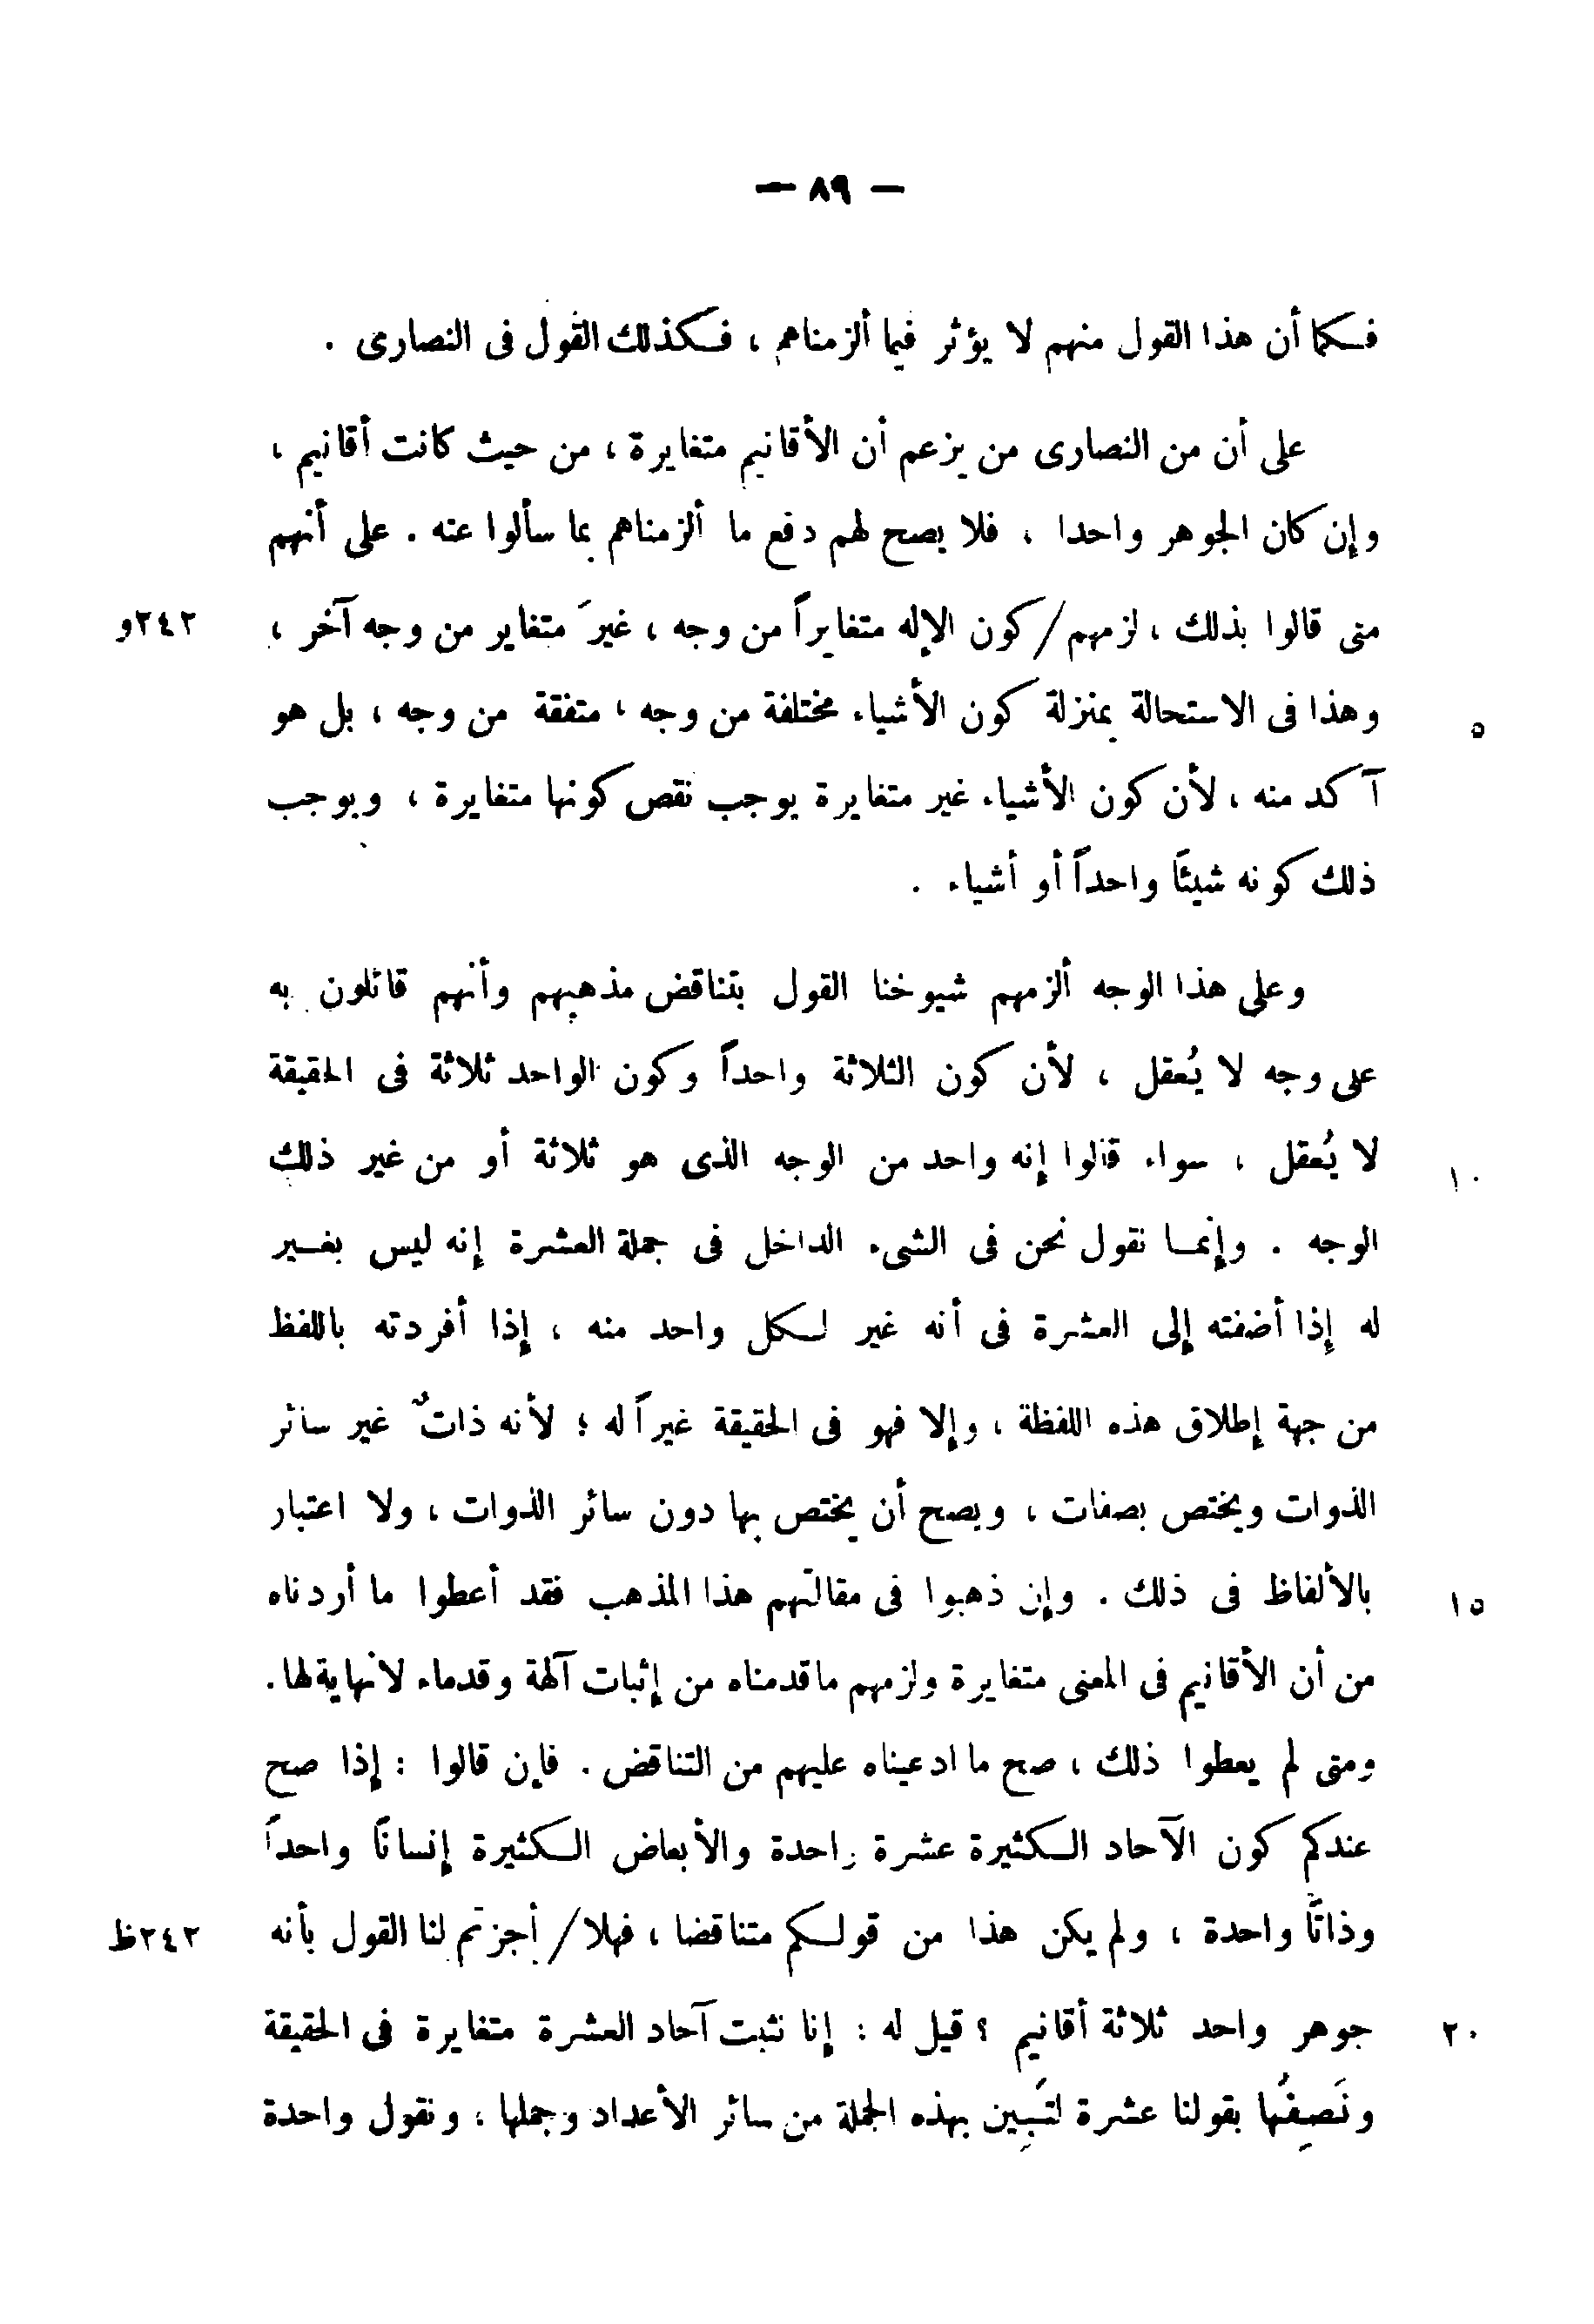 — ٨٩ —
فكما أن هذا القول منهم لا يؤثر فيما ألزمناهم ، فكذلك القول فى النصارى .
على أن من النصارى من يزعم أن الأقانيم متغايرة ، من حيث كانت أقانيم ،
وإن كان الجوهر واحدا ، فلا يصح لهم دفع ما ألزمناهم بما سألوا عنه . على أنهم
متى قالوا بذلك ، لزمهم / كون الإله متغايراً من وجه ، غيرَ متغاير من وجه آخر ، ٢٤٢و
وهذا فى الاستحالة بمنزلة كون الأشياء مختلفة من وجه ، متفقة من وجه ، بل هو ٥
آكد منه ، لأن كون الأشياء غير متغايرة يوجب نقص كونها متغايرة ، ويوجب
ذلك كونه شيئًا واحداً أو أشياء .
وعلى هذا الوجه ألزمهم شيوخنا القول بتناقض مذهبهم وأنهم قائلون به
على وجه لا يُعقل ، لأن كون الثلاثة واحداً وكون الواحد ثلاثة فى الحقيقة
لا يُعقل ، سواء قالوا إنه واحد من الوجه الذى هو ثلاثة أو من غير ذلك ١٠
الوجه . وإنما نقول نحن فى الشىء الداخل فى جملة العشرة إنه ليس بغير
له إذا أضفته إلى العشرة فى أنه غير لكل واحد منه ، إذا أفردته باللفظ
من جهة إطلاق هذه اللفظة ، وإلا فهو فى الحقيقة غيراً له ؛ لأنه ذاتٌ غير سائر
الذوات ويختص بصفات ، ويصح أن يختص بها دون سائر الذوات ، ولا اعتبار
بالألفاظ فى ذلك . وإن ذهبوا فى مقالتهم هذا المذهب فقد أعطوا ما أردناه ١٥
من أن الأقانيم فى المعنى متغايرة ولزمهم ماقدمناه من إثبات آلهة وقدماء لانهاية لها .
ومتى لم يعطوا ذلك ، صح ما ادعيناه عليهم من التناقض . فإن قالوا : إذا صح
عندكم كون الآحاد الكثيرة عشرة واحدة والأبعاض الكثيرة إنسانًا واحداً
وذاتًا واحدة ، ولم يكن هذا من قولكم متناقضا ، فهلا / أجزتم لنا القول بأنه ٢٤٢ظ
جوهر واحد ثلاثة أقانيم ؟ قيل له : إنا نثبت آحاد العشرة متغايرة فى الحقيقة ٢٠
ونَصِفُها بقولنا عشرة لتَبِين بهذه الجملة من سائر الأعداد وجملها ، ونقول واحدة